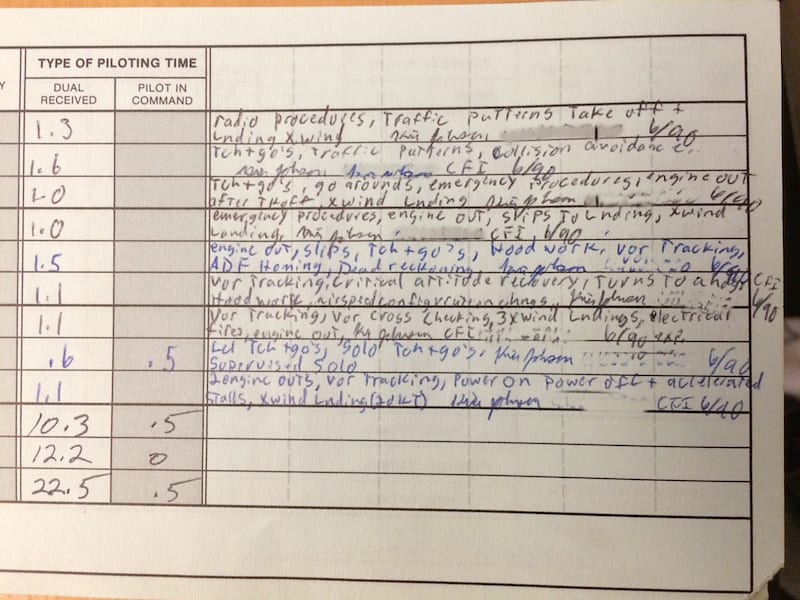 Y
TYPE OF PILOTING TIME
DUAL RECEIVED
PILOT IN COMMAND
1.3
radio procedures, Traffic patterns Take off +
Lnding Xwind 6/90
1.6
Tch+go's, Traffic Patterns, collision avoidance.
CFI 6/90
1.0
Tch+go's, go arounds, emergency procedures, engine out
after Tkoff, xwind Lnding 6/90
1.0
emergency procedures, engine out, slips To Lnding, xwind
Landing, CFI, 6/90
1.5
engine out, slips, Tch+go's, Hood work, vor Tracking,
ADF Homing, Dead reckoning 6/90 CFI
1.1
Vor Tracking, Critical attitude recovery, Turns To a hdg
Hood work, 6/90
1.1
Vor Tracking, Vor Cross Checking, 3xwind Lndings, electrical
fires, engine out, CFI 6/90
.6 .5
Tch+go's, Solo Tch+go's, 6/90
Supervised Solo
1.1
2engine outs, vor Tracking, Power on Power off + accelerated
Stalls, Xwind Lnding CFI 6/90
10.3 .5
12.2 0
22.5 .5